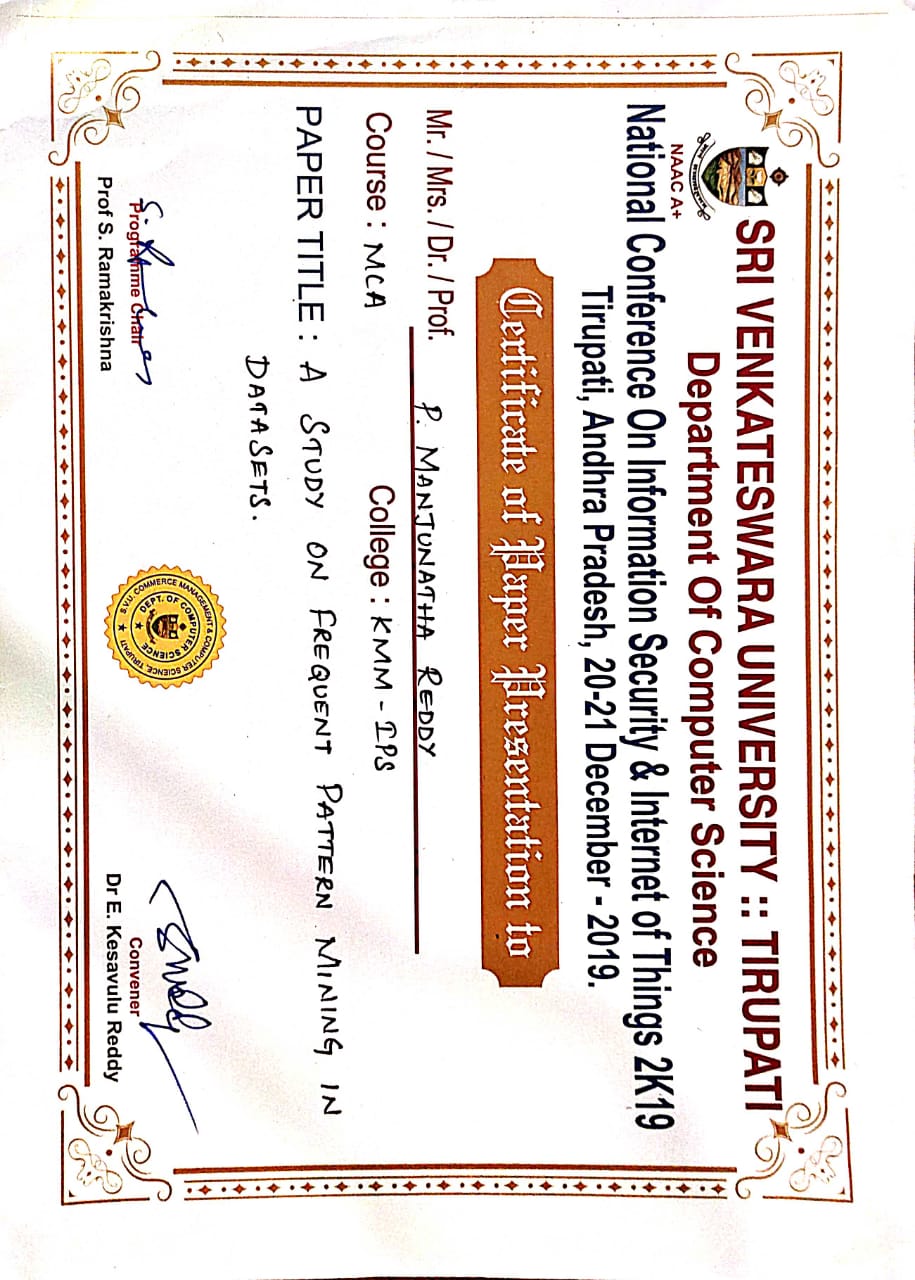 SRI VENKATESWARA UNIVERSITY :: TIRUPATI
Department Of Computer Science
NAAC A+
National Conference On Information Security & Internet of Things 2K19
Tirupati, Andhra Pradesh, 20-21 December - 2019.
Certificate of Paper Presentation to
Mr. / Mrs. / Dr. / Prof. P. MANJUNATHA REDDY
Course : MCA College : KMM - IPS
PAPER TITLE : A STUDY ON FREQUENT PATTERN MINING IN
DATASETS.
S.V.U. COMMERCE MANAGEMENT & COMPUTER SCIENCE, TIRUPATI
DEPT. OF COMPUTER SCIENCE
Programme Chair
Prof S. Ramakrishna
Convener
Dr E. Kesavulu Reddy